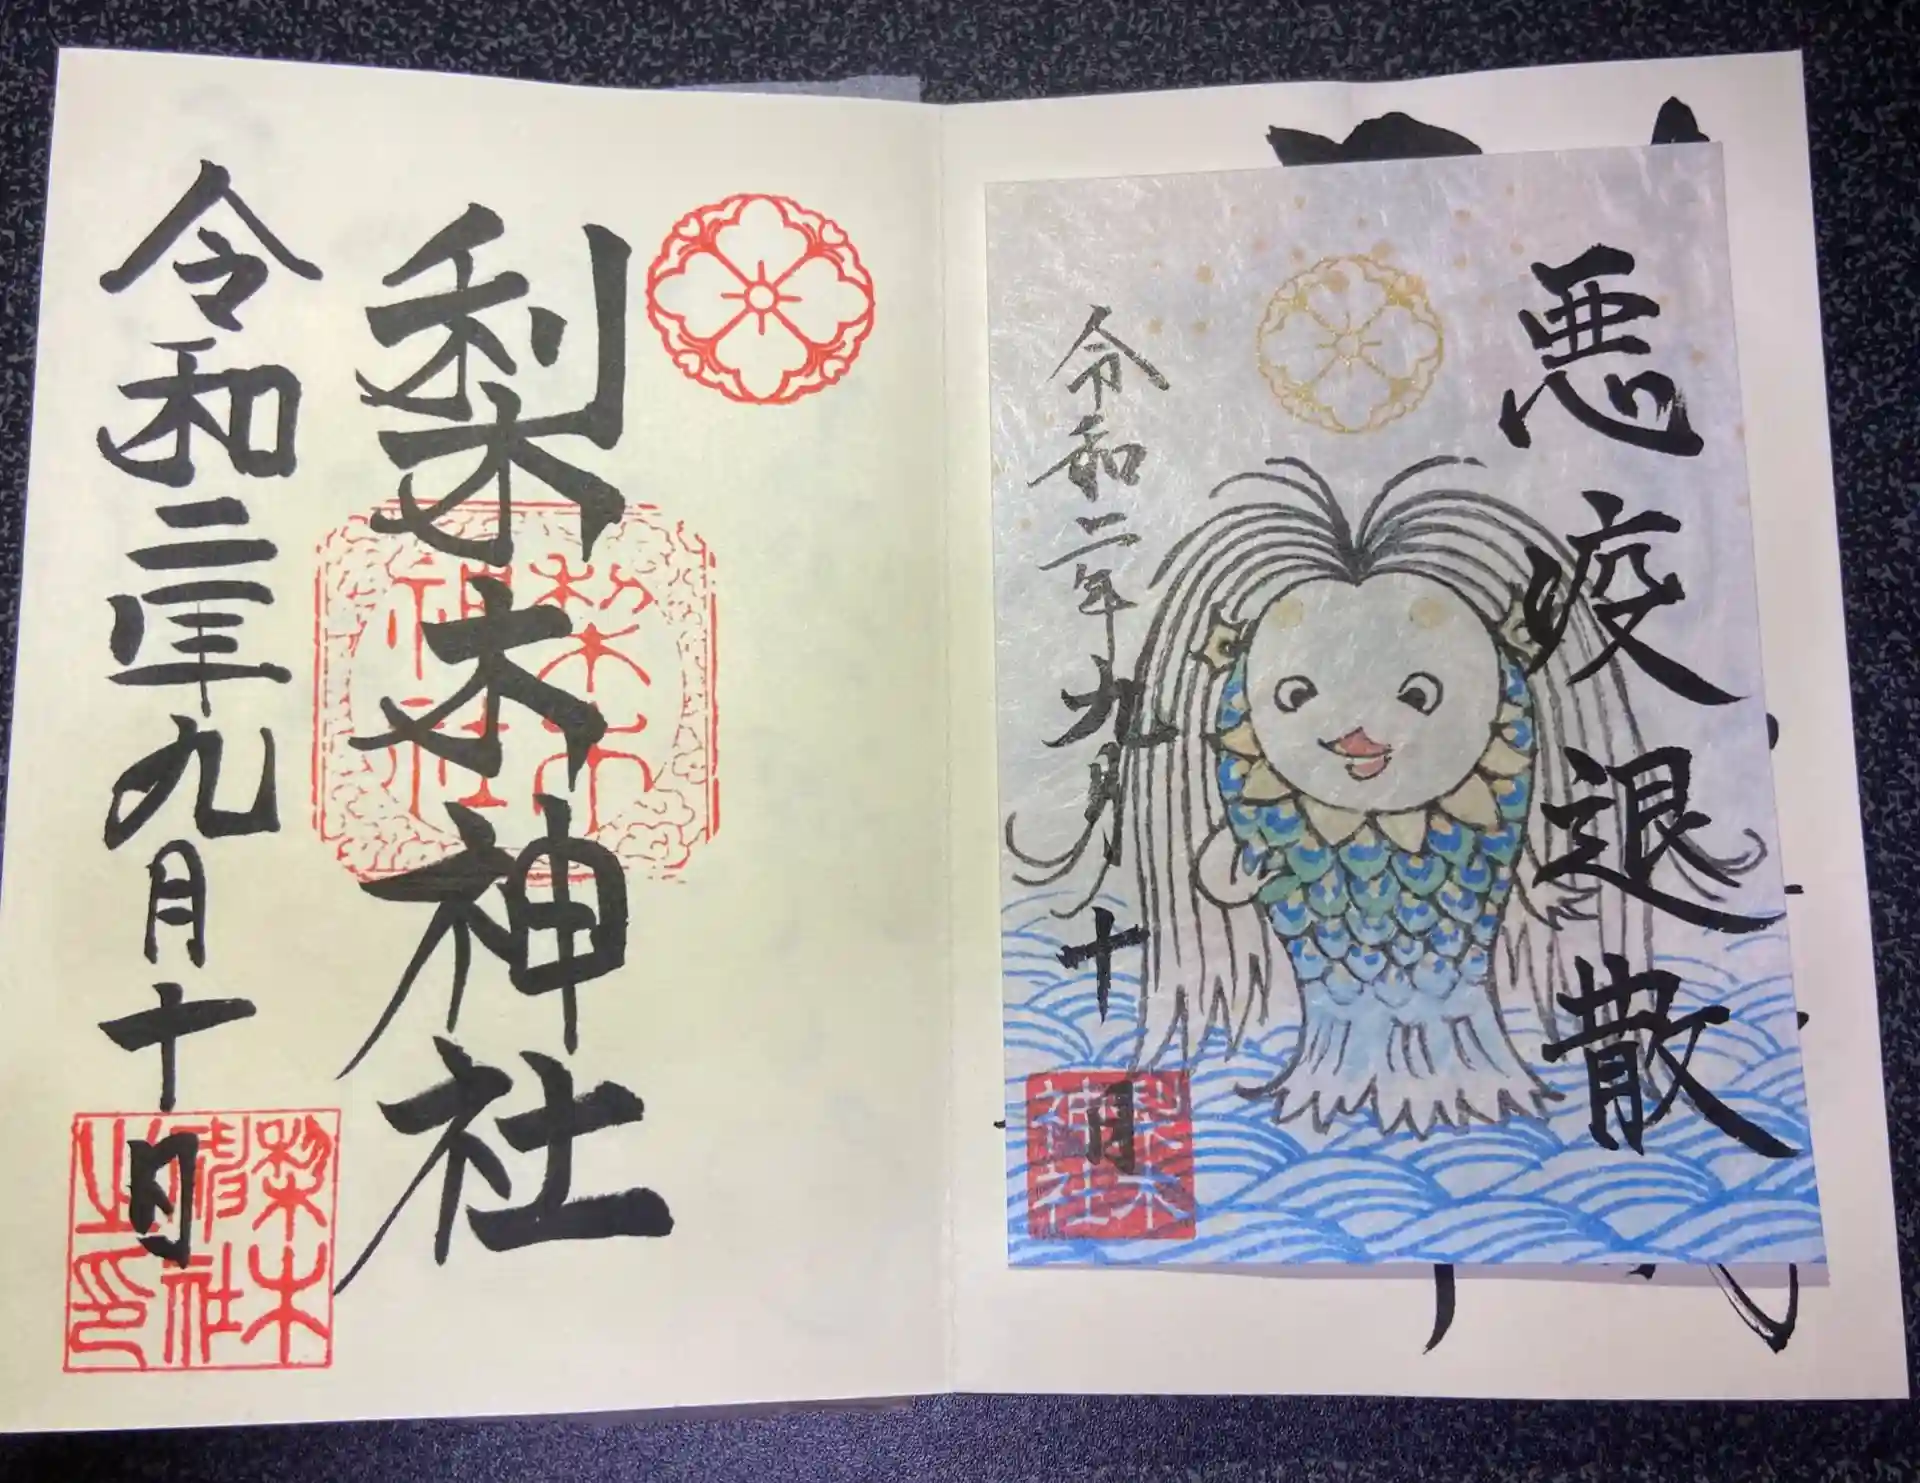 悪疫退散
令和二年九月十日
梨木神社
梨木神社
梨木神社
令和二年九月十日
梨木神社之印